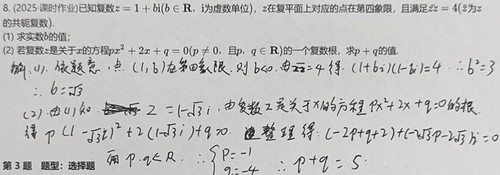 8. (2025·课时作业)已知复数z=1+bi(b∈R，i为虚数单位)，z在复平面上对应的点在第四象限，且满足zz̄=4(z̄为z
的共轭复数).
(1) 求实数b的值；
(2) 若复数z是关于x的方程px²+2x+q=0(p≠0，且p，q∈R)的一个复数根，求p+q的值.
解:(1). 依题意，点(1,b)在第四象限. 则b<0. 由zz̄=4得. (1+bi)(1-bi)=4 ∴b²=3
∴b=√3
(2) 由(1)知 z=1-√3i，由复数z是关于x的方程px²+2x+q=0的根.
得 p(1-√3i)²+2(1-√3i)+q=0. 整理得:(-2p+q+2)+(-2√3p-2√3)i=0
而p.q∈R. ∴{p=-1 q=-4 ∴p+q=5.
第 3 题 题型：选择题